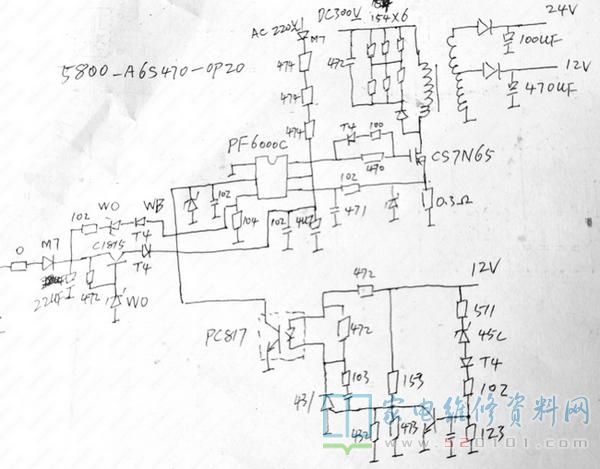 AC 220V
DC300V
154X6
24V
M7
100UF
12V
474
472
5800-A6S470-0P20
470UF
474
474
T4
100
PF6000C
CS7N65
470
102
102
0.3Ω
WO
WB
102
104
102
471
T4
M7
C1815
T4
0
22UF
472
WO
472
12V
511
PC817
472
45C
T4
103
153
102
431
432
473
123
家电维修资料网
www.520101.com